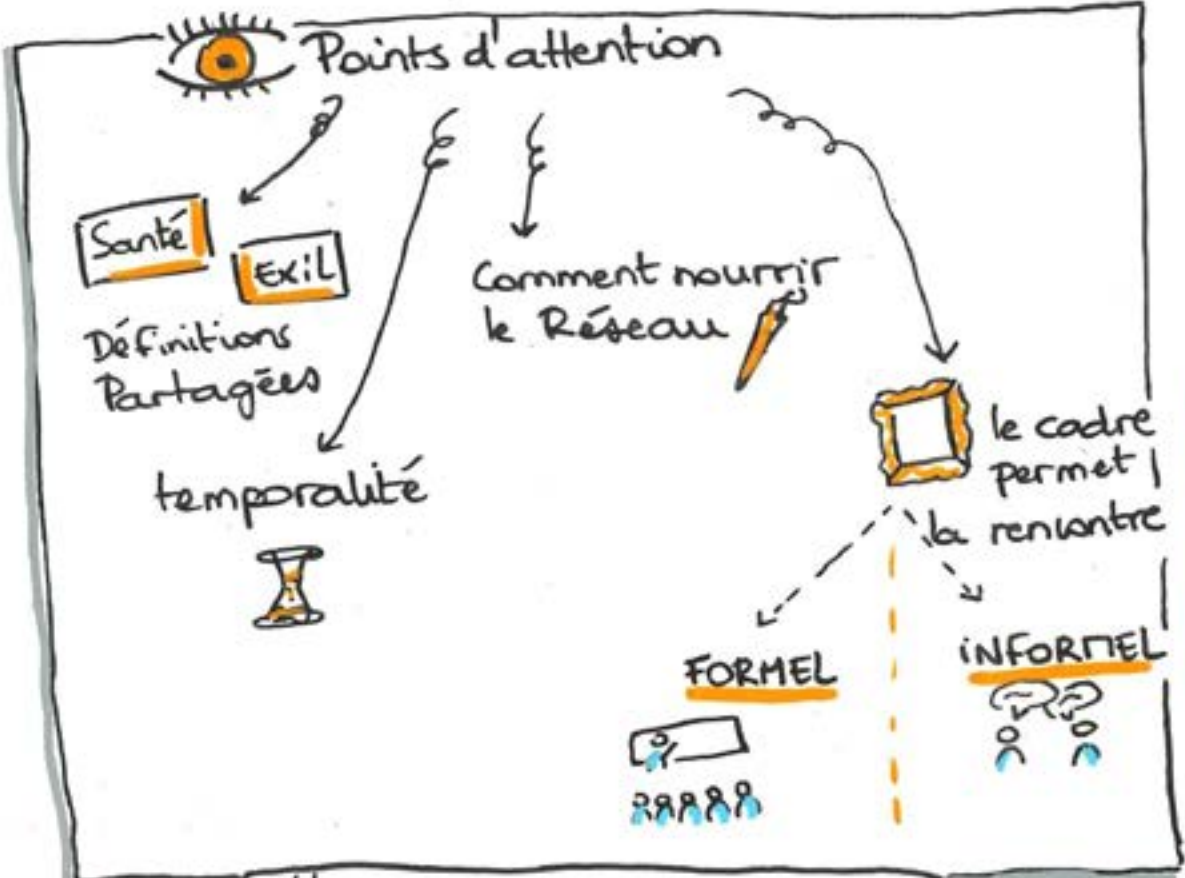 Points d'attention
Santé
Exil
Définitions
Partagées
temporalité
Comment nourrir
le Réseau
le cadre
permet
la rencontre
FORMEL
iNFORMEL